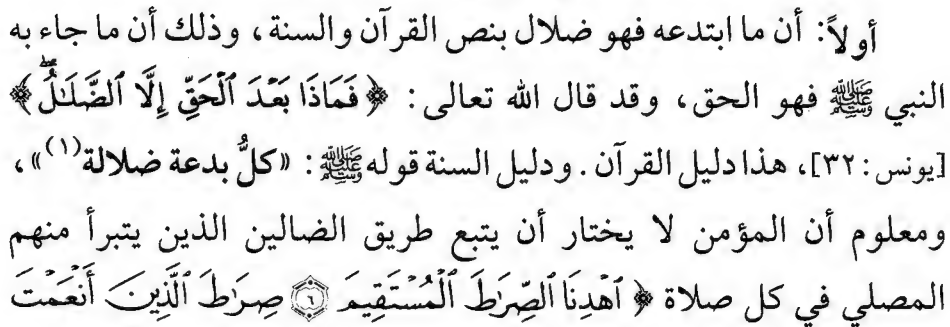 أولاً: أن ما ابتدعه فهو ضلال بنص القرآن والسنة، وذلك أن ما جاء به
النبي ﷺ فهو الحق، وقد قال الله تعالى: ﴿فَمَاذَا بَعْدَ ٱلْحَقِّ إِلَّا ٱلضَّلَـٰلُۖ﴾
[يونس: ٣٢]، هذا دليل القرآن. ودليل السنة قوله ﷺ: «كلُّ بدعة ضلالة(١)»،
ومعلوم أن المؤمن لا يختار أن يتبع طريق الضالين الذين يتبرأ منهم
المصلي في كل صلاة ﴿ٱهْدِنَا ٱلصِّرَٰطَ ٱلْمُسْتَقِيمَ ۝٦ صِرَٰطَ ٱلَّذِينَ أَنْعَمْتَ